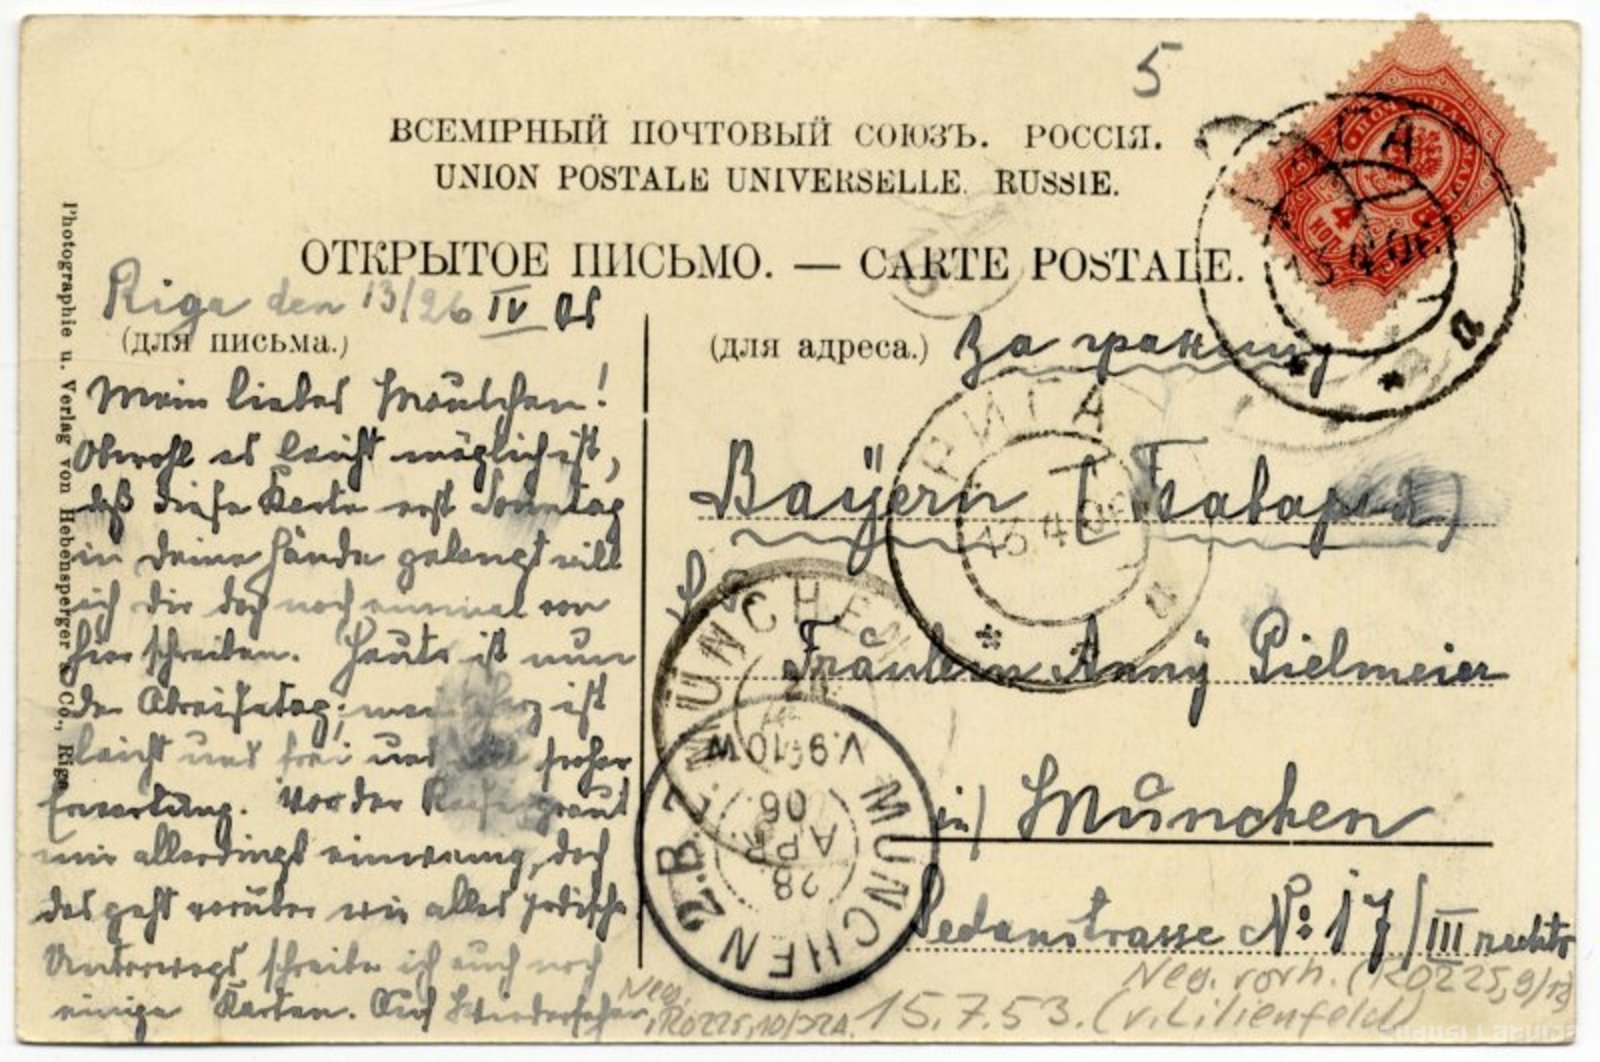 5
ВСЕМІРНЫЙ ПОЧТОВЫЙ СОЮЗЪ. РОССІЯ.
UNION POSTALE UNIVERSELLE. RUSSIE.
ОТКРЫТОЕ ПИСЬМО. — CARTE POSTALE.
Riga den 13/26 IV 06
(для письма.)
Mein liebes Mäuschen!
Obwohl es leicht möglich ist,
daß diese Karte erst Sonntag
in deine Hände gelangt will
ich dir doch noch einmal von
hier schreiben. Heute ist nun
der Abreisetag; mein Herz ist
leicht und frei und froher
Erwartung. Vor der Reise graut
mir allerdings ein wenig, doch
das geht vorüber wie alles Irdische
Unterwegs schreibe ich auch noch
einige Karten. Auf Wiedersehen
Photographie u. Verlag von Hebensperger & Co., Riga
(для адреса.) За границу
Bayern (Бавария)
Fräulein Anny Pielmeier
in) München
Sedanstrasse No 17/III rechts
Neg. vorh. (RO225,9/12)
15.7.53. (v. Lilienfeld)
Neg.
RO225,10/12A.
ПОЧТОВАЯ МАРКА
4 КОП.
РИГА
13 4 06
РИГА
13 4 06
MÜNCHEN 2.B.Z.
MÜNCHEN 2.B.Z.
28
APR
06
V.9-10W